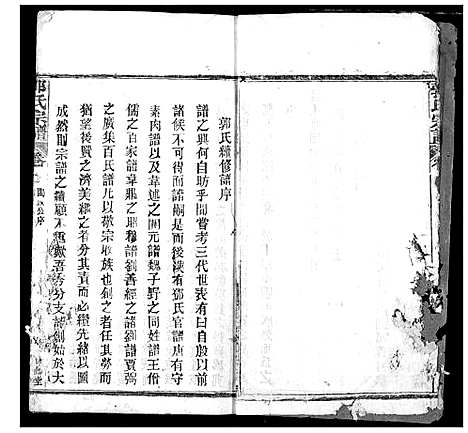 郭氏續修譜序
譜之興何自昉乎間嘗考三代世表有曰自殷以前
諸侯不可得而譜嗣是而後漢有鄧氏官譜唐有守
素肉譜以及韋述之開元譜魏子野之同姓譜王
儒之百家譜 之昭穆譜劉善經之諸劉譜賈弼
之廣集百氏譜凡以敬宗收族也創之者任其勞而
猶望後賢之濟美繼之者分其責而必纘先緒以圖
成然則宗譜之續顧不重歟吾 分支 創始於大
郭氏宗譜